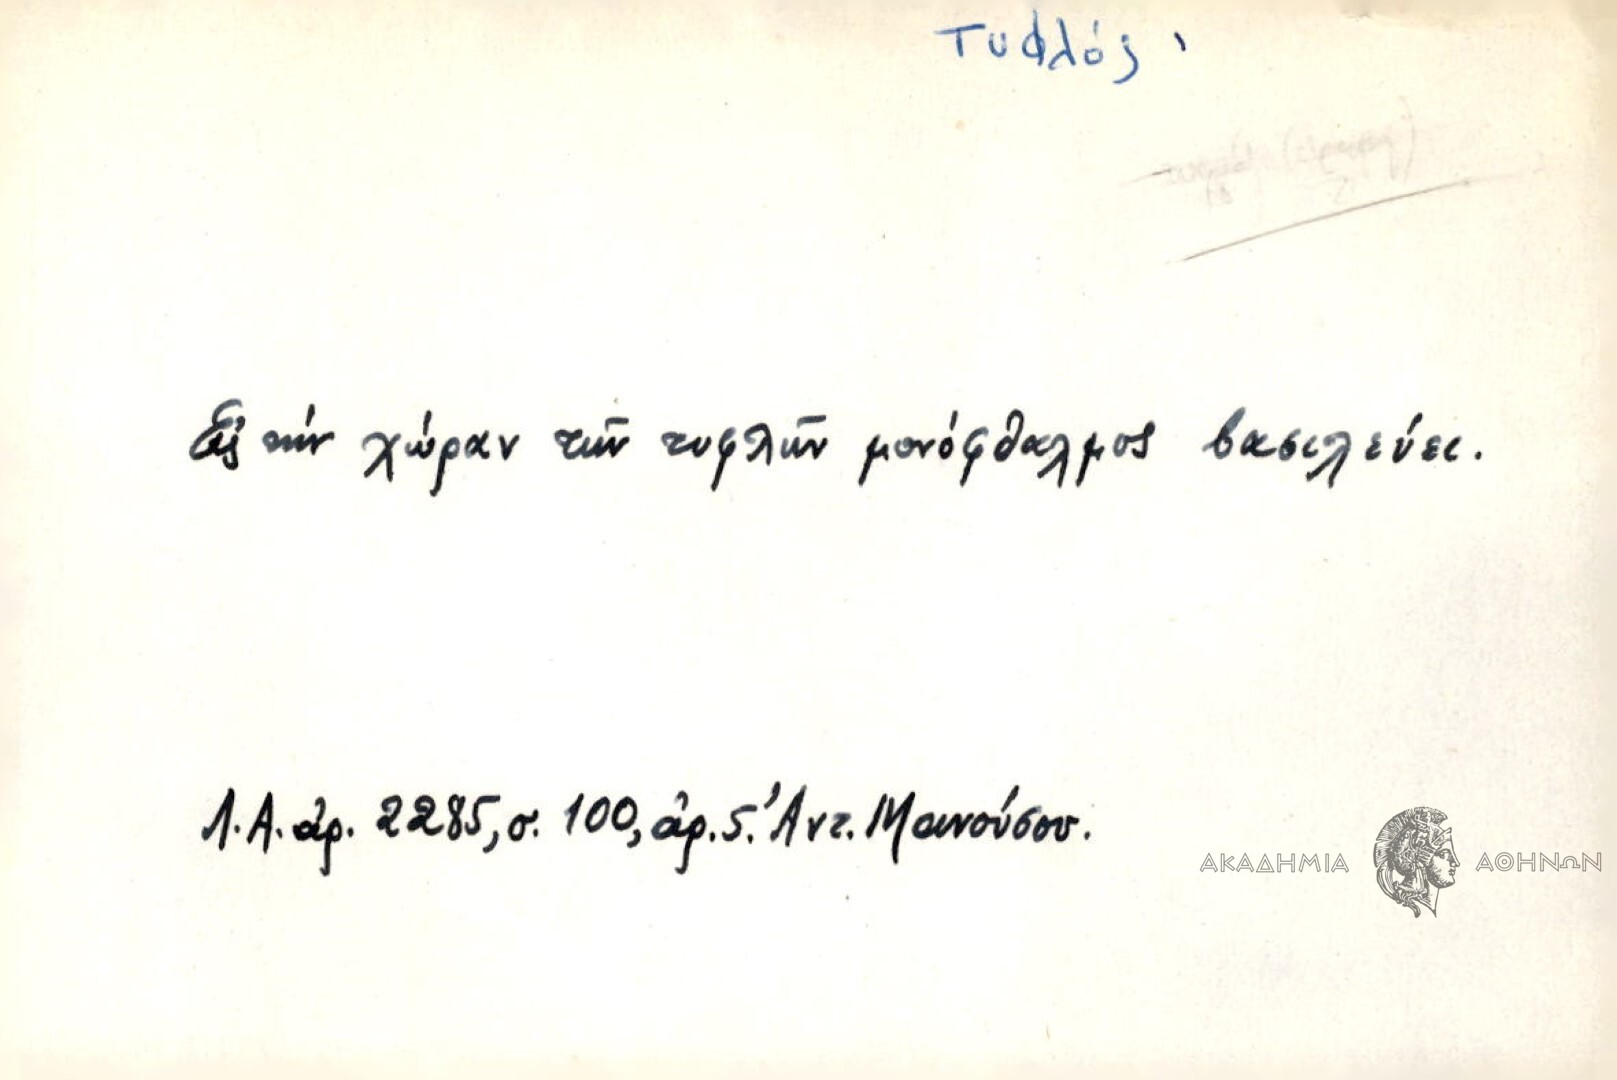 Τυφλός
Εἰς τὴν χώραν τῶν τυφλῶν μονόφθαλμος βασιλεύει.
Λ.Α. ἀρ. 2285, σ. 100, ἀρ. 5. Ἀντ. Μανούσου.
ΑΚΑΔΗΜΙΑ ΑΘΗΝΩΝ